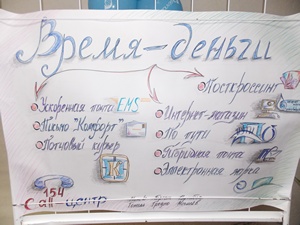 Время-деньги
Посткроссинг
Ускоренная почта EMS
Письмо "Комфорт"
Почтовый курьер
Интернет-магазин
По пути
Гибридная почта
Электронная марка
К
154
Call-центр